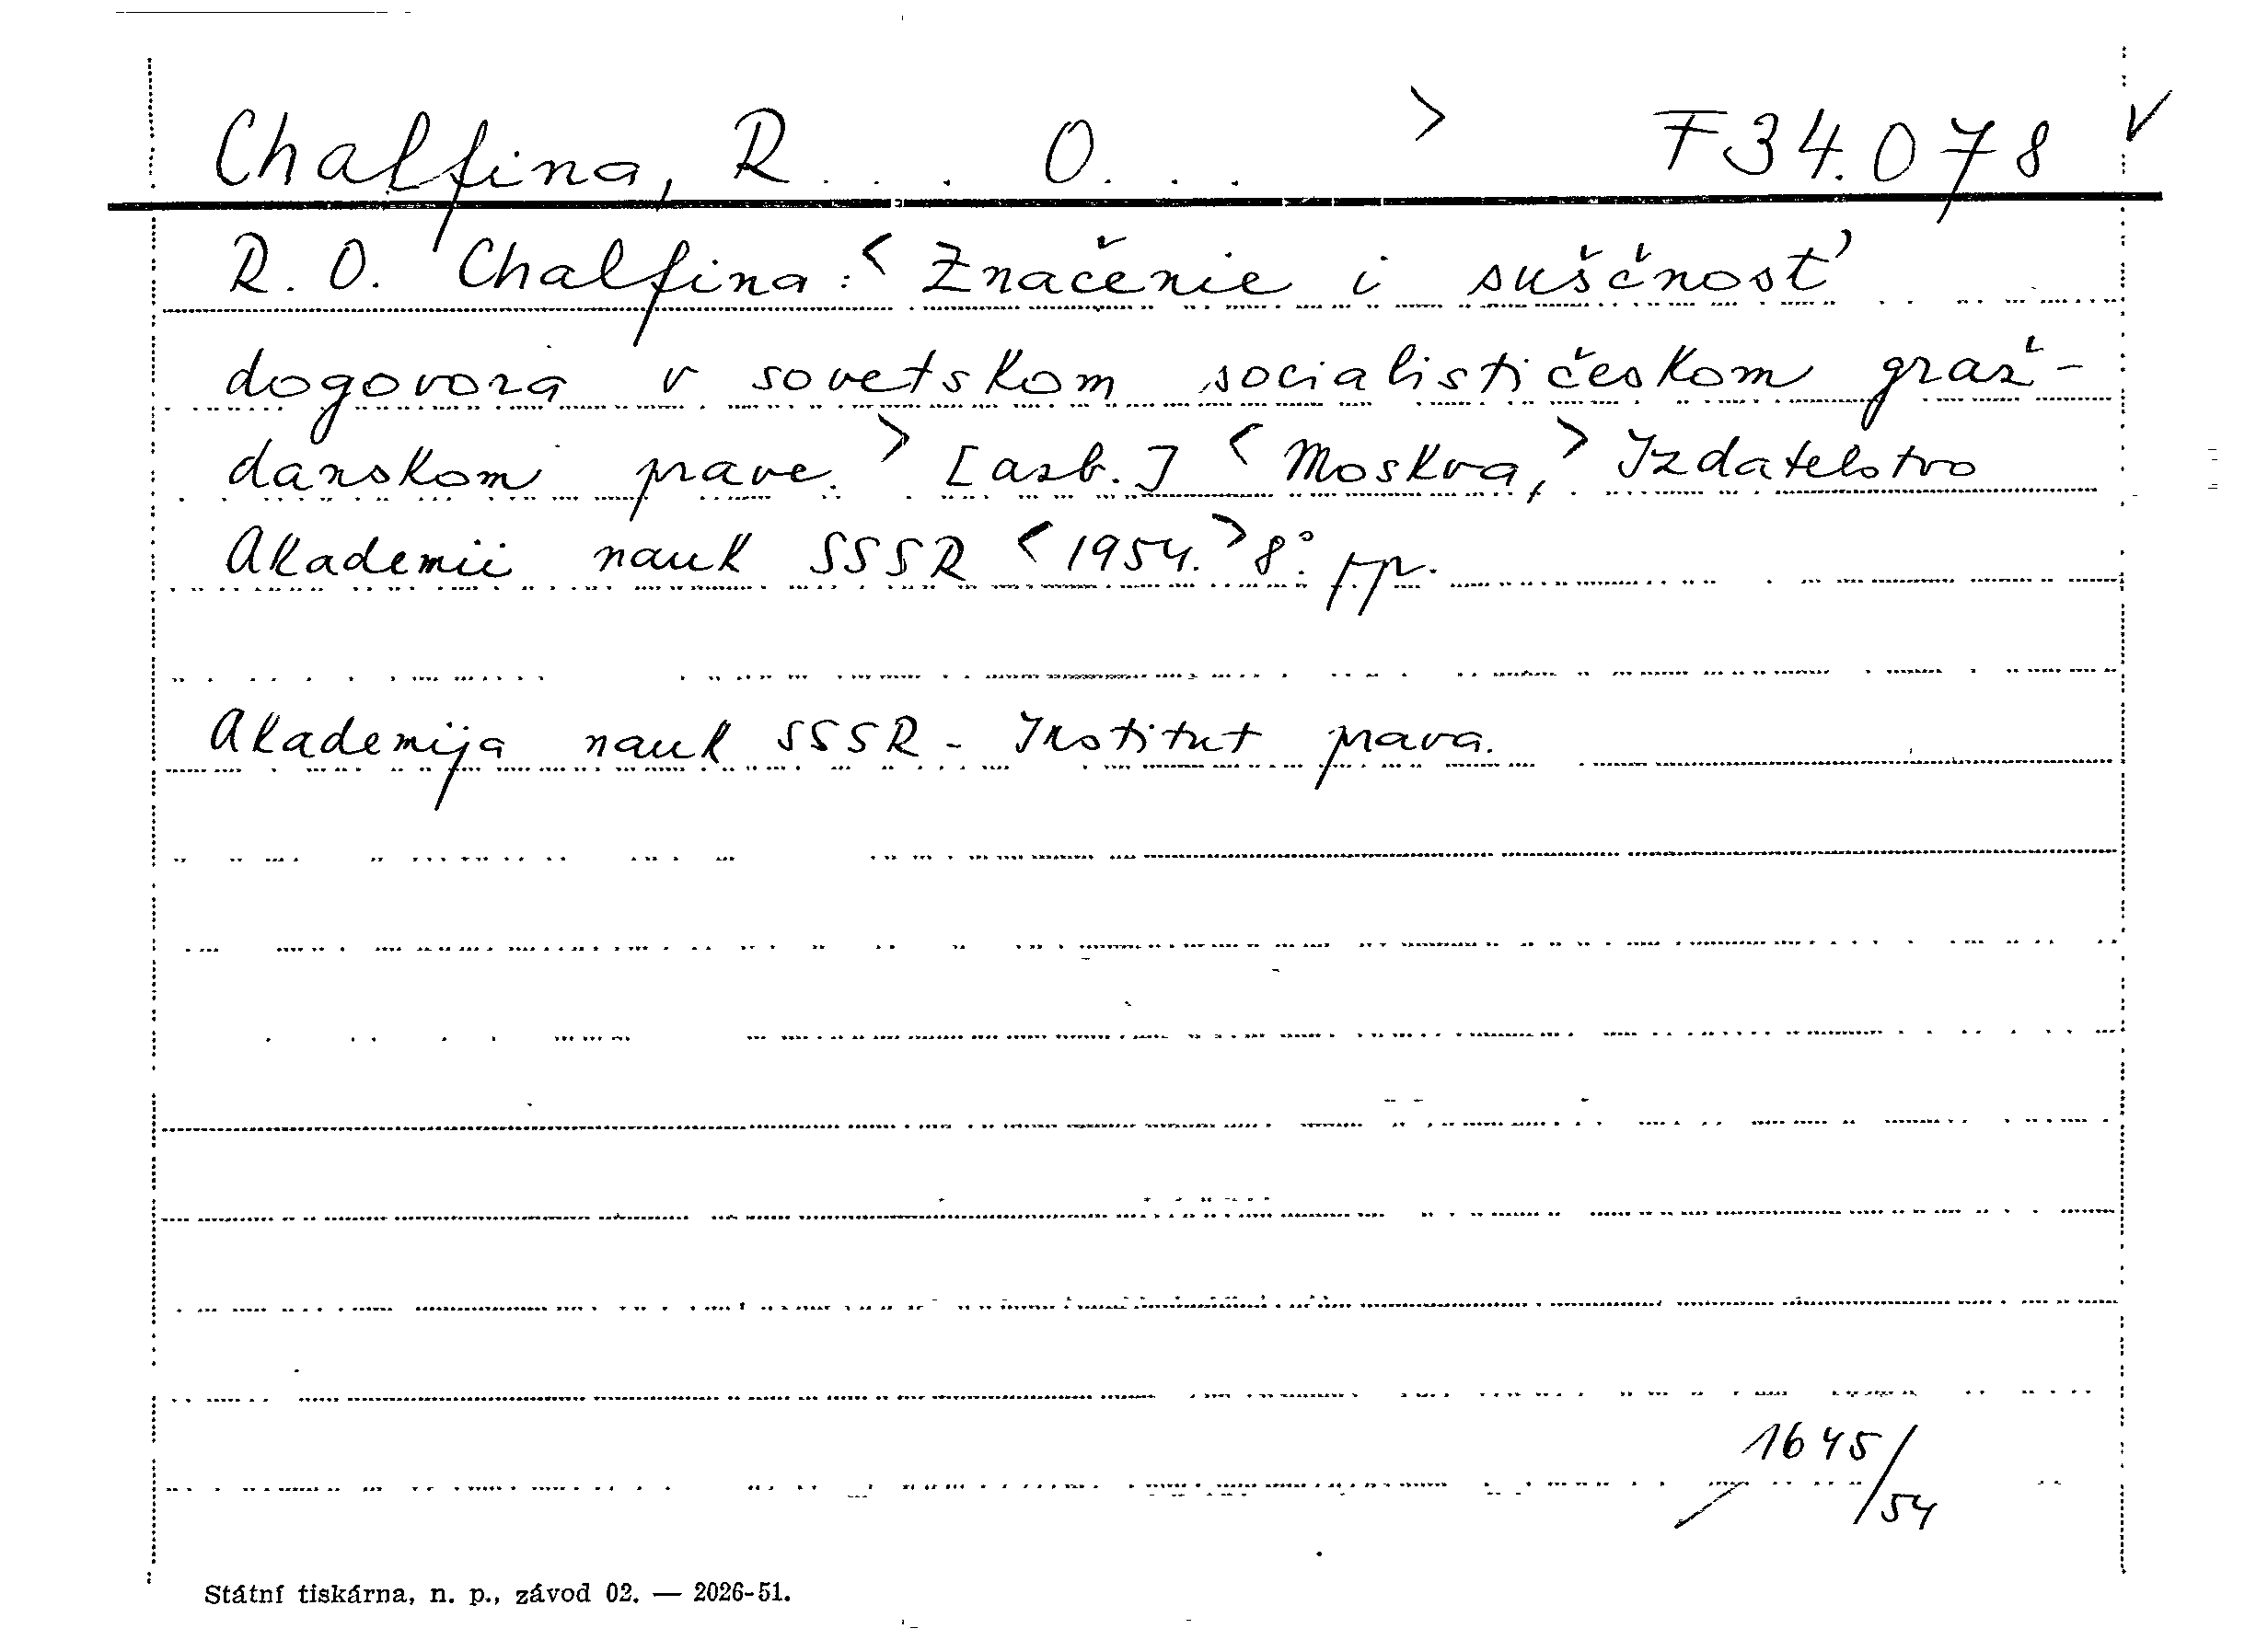 Chalfina, R... O... > F 34.078 ✓
R. O. Chalfina: < Značenie i suščnosť
dogovora v sovetskom socialističeskom graž-
danskom prave. > [azb.] < Moskva, > Izdatelstvo
Akademii nauk SSSR < 1954. > 8°. pp.
Akademija nauk SSSR - Institut prava.
1645/54
Státní tiskárna, n. p., závod 02. — 2026-51.